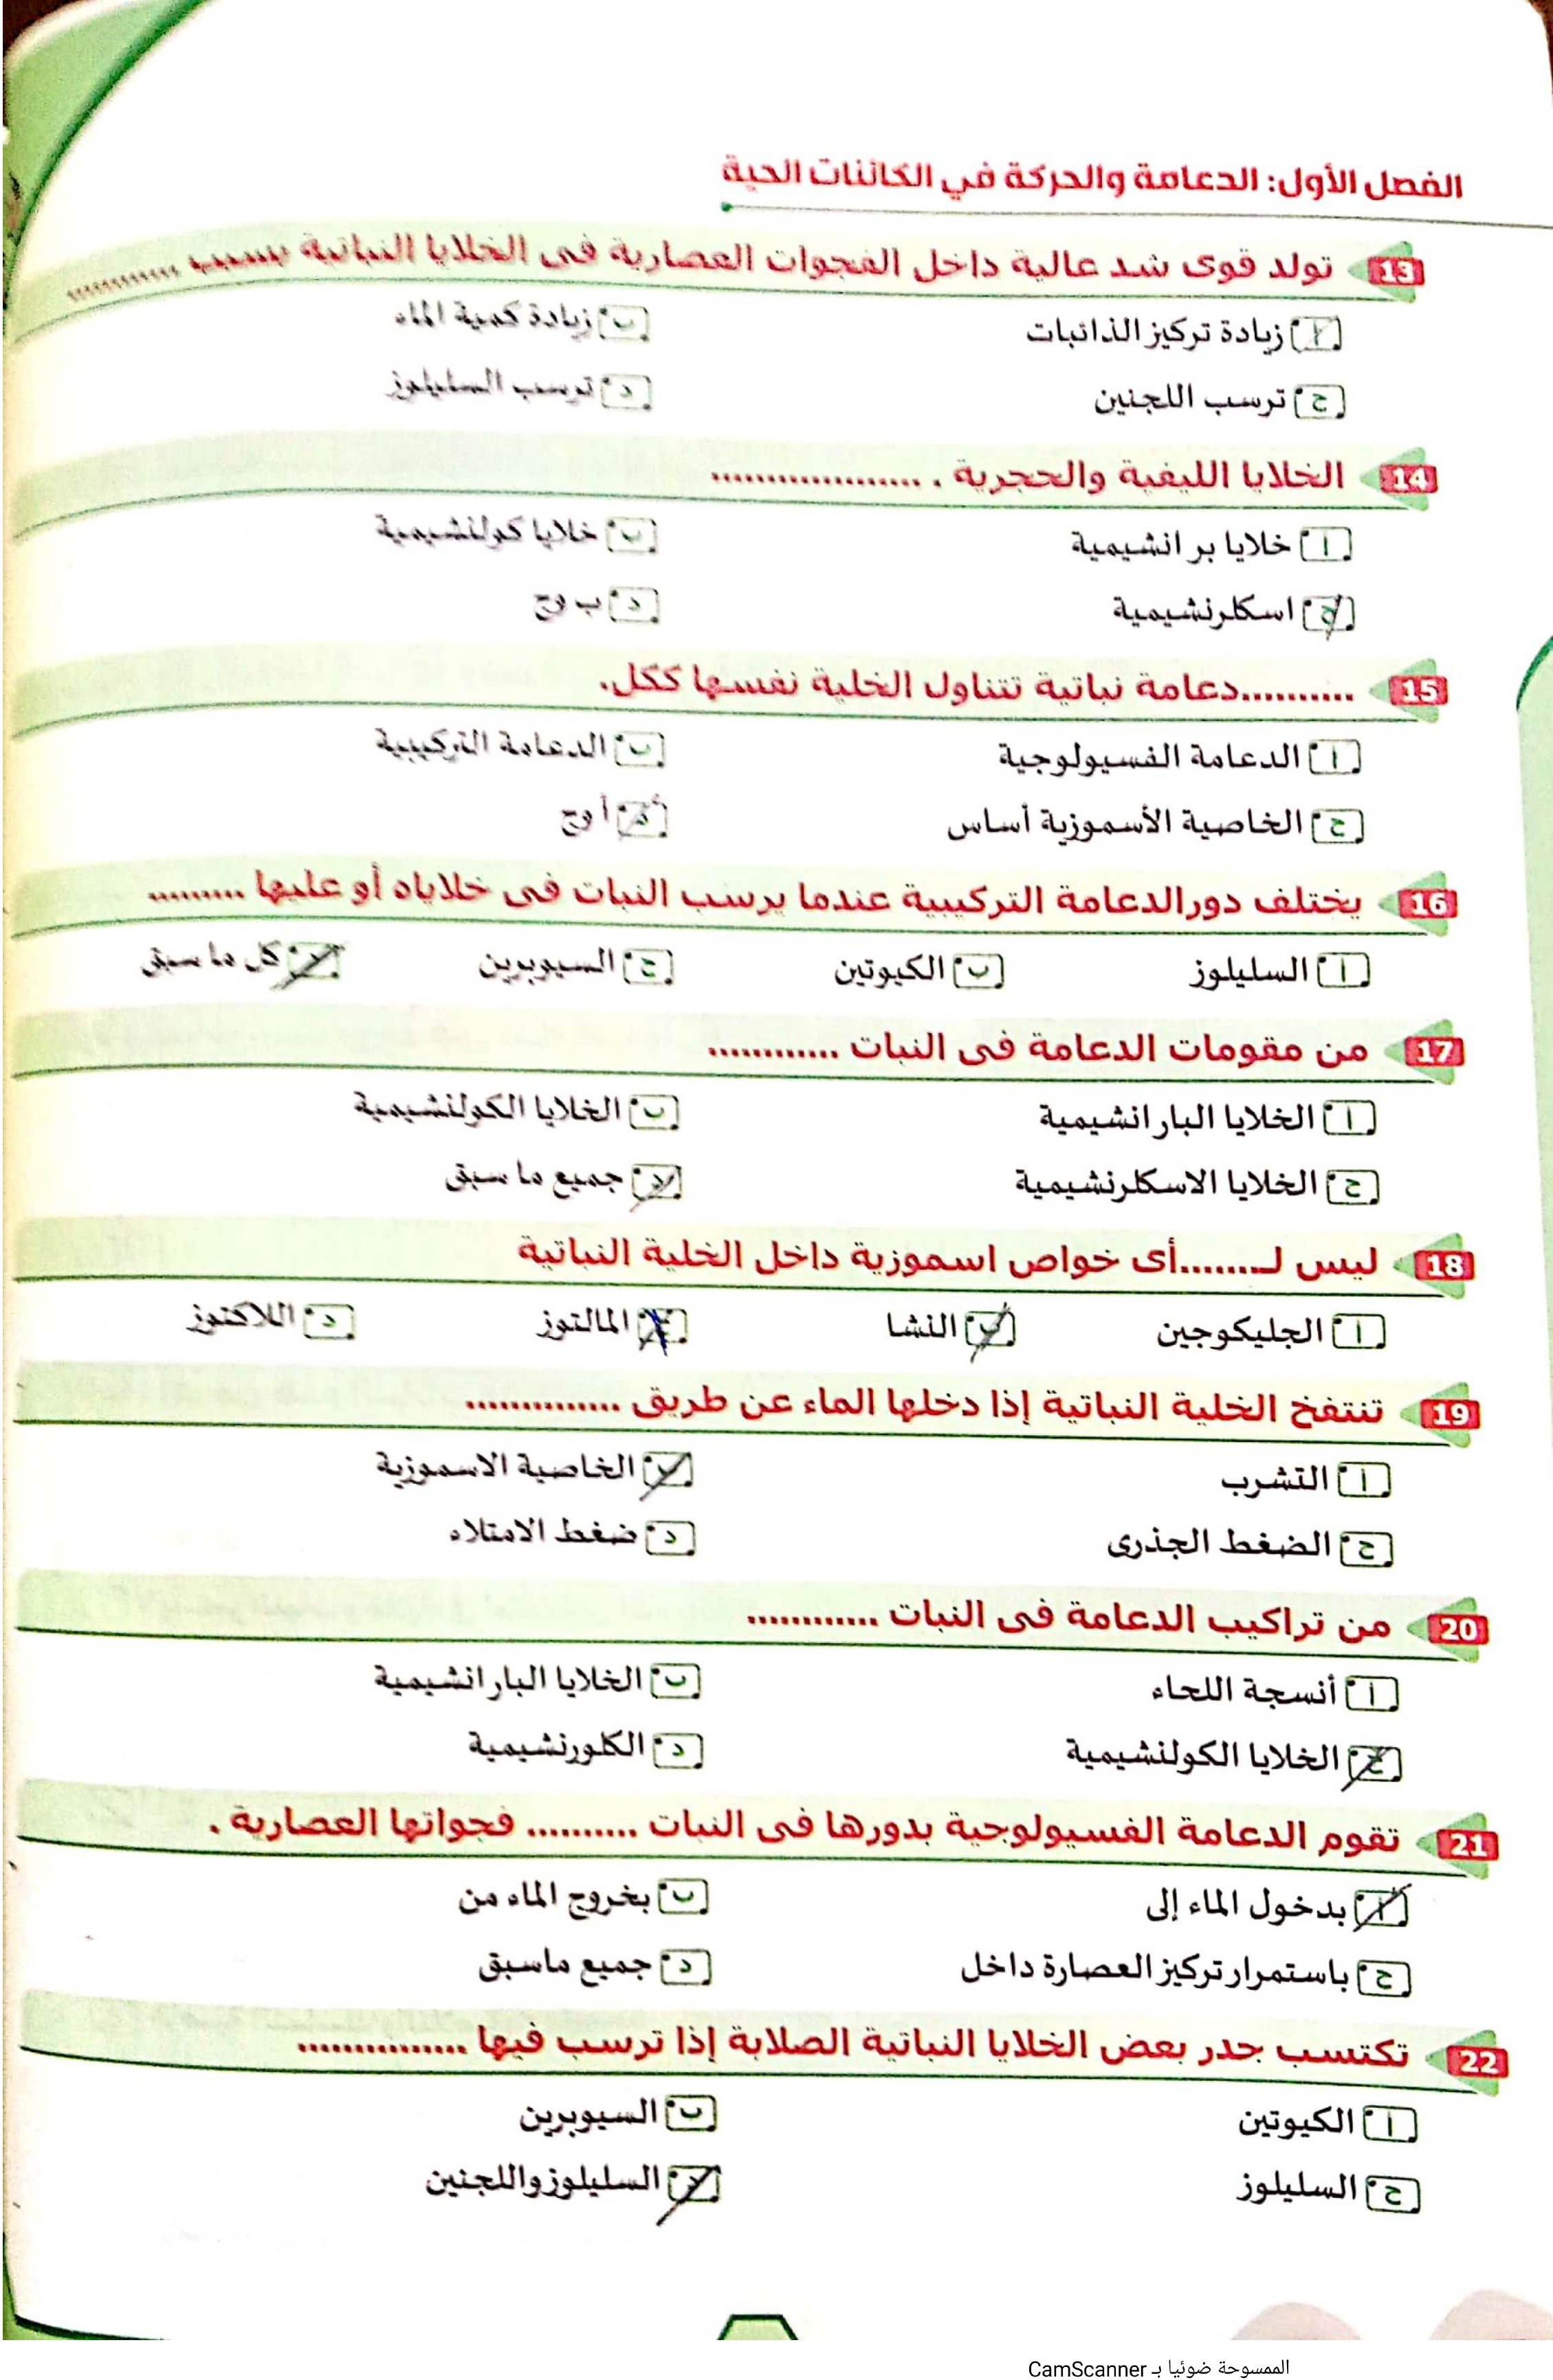 الفصل الأول: الدعامة والحركة في الكائنات الحية
13 تولد قوى شد عالية داخل الفجوات العصارية فى الخلايا النباتية بسبب ............
أ زيادة تركيز الذائبات ب زيادة كمية الماء
ج ترسب اللجنين د ترسب السليلوز
14 الخلايا الليفية والحجرية . ...................
أ خلايا بر انشيمية ب خلايا كولنشيمية
ج اسكلرنشيمية د ب وج
15 ..........دعامة نباتية تتناول الخلية نفسها ككل.
أ الدعامة الفسيولوجية ب الدعامة التركيبية
ج الخاصية الأسموزية أساس د أ وج
16 يختلف دورالدعامة التركيبية عندما يرسب النبات فى خلاياه أو عليها .........
أ السليلوز ب الكيوتين ج السيوبرين د كل ما سبق
17 من مقومات الدعامة فى النبات ............
أ الخلايا البار انشيمية ب الخلايا الكولنشيمية
ج الخلايا الاسكلرنشيمية د جميع ما سبق
18 ليس لـ........أى خواص اسموزية داخل الخلية النباتية
أ الجليكوجين ب النشا ج المالتوز د اللاكتوز
19 تنتفخ الخلية النباتية إذا دخلها الماء عن طريق ..............
أ التشرب ب الخاصية الاسموزية
ج الضغط الجذرى د ضغط الامتلاء
20 من تراكيب الدعامة فى النبات ............
أ أنسجة اللحاء ب الخلايا البار انشيمية
ج الخلايا الكولنشيمية د الكلورنشيمية
21 تقوم الدعامة الفسيولوجية بدورها فى النبات .......... فجواتها العصارية .
أ بدخول الماء إلى ب بخروج الماء من
ج باستمرار تركيز العصارة داخل د جميع ماسبق
22 تكتسب جدر بعض الخلايا النباتية الصلابة إذا ترسب فيها ...............
أ الكيوتين ب السيوبرين
ج السليلوز د السليلوز واللجنين
الممسوحة ضوئيا بـ CamScanner